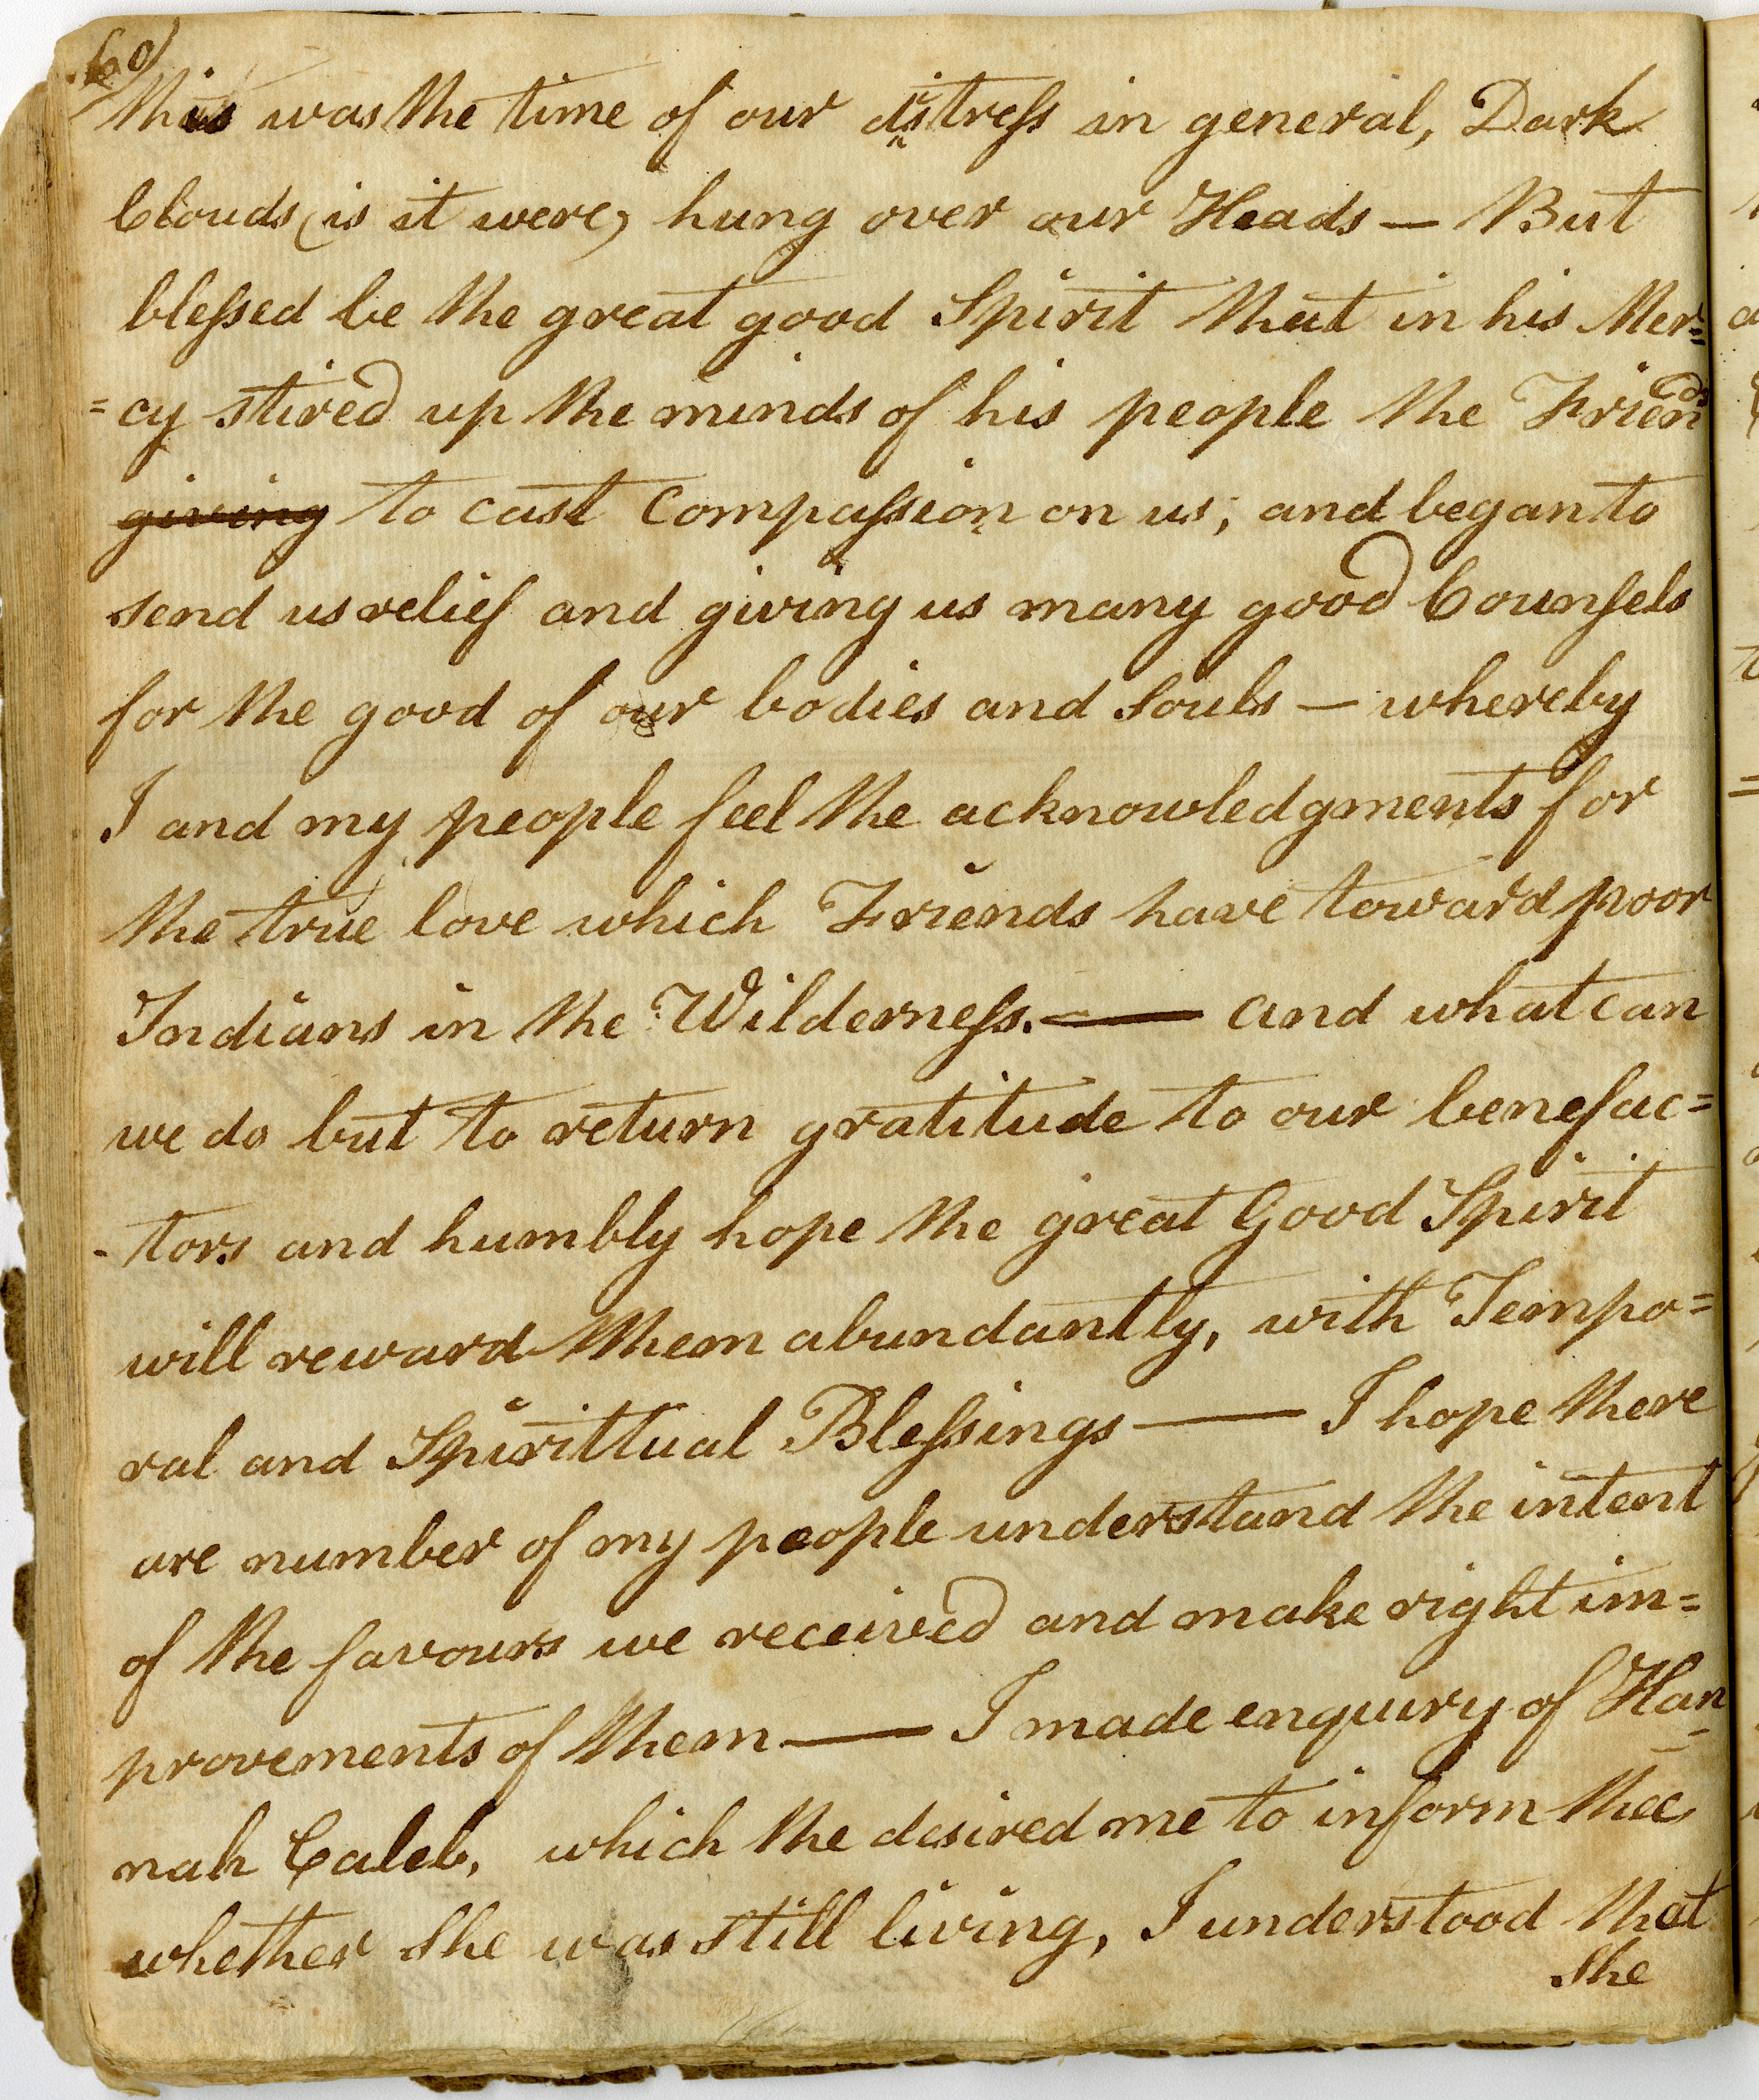 60)
this was the time of our distress in general, Dark
Clouds (is it were) hung over our Heads — But
blessed be the great good Spirit that in his Mer=
=cy stired up the minds of his people the Friends
giving to cast Compassion on us; and began to
send us relief and giving us many good Counsels
for the good of our bodies and Souls — whereby
I and my people feel the acknowledgments for
the true love which Friends have toward poor
Indians in the Wilderness. — and what can
we do but to return gratitude to our benefac=
-tors and humbly hope the great Good Spirit
will reward them abundantly, with Tempo=
ral and Spirittual Blessings — I hope there
are number of my people understand the intent
of the favours we received and make right im=
provements of them — I made enquiry of Han=
nah Caleb, which the desired me to inform thee
whether She was still living, I understood that
She